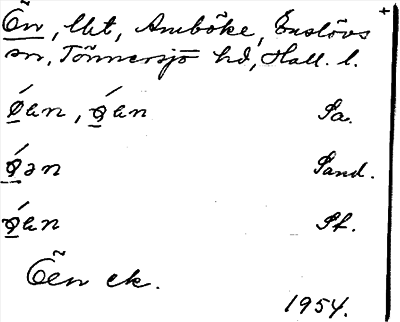 Ön, llet, Amböke, Enslövs +
sn, Tönnersjö hd, Hall. l.
ǿan, ǿan Sa.
ǿən Sand.
ǿan St.
Öen ek.
1954.